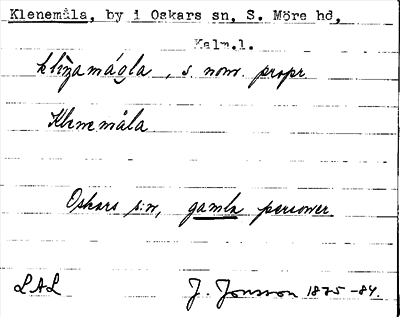 Klenemåla, by i Oskars sn, S. Möre hd,
Kalm.l.
klinamåɷla, s. nom. propr
Klenemåla
Oskars s:n, gamla personer
LAL J. Jonsson 1875-84.